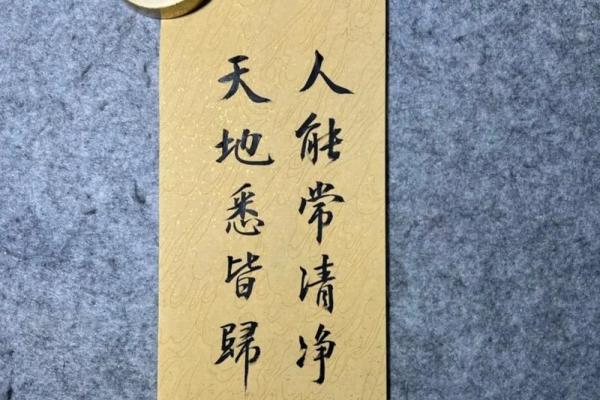 人能常清净
天地悉皆歸